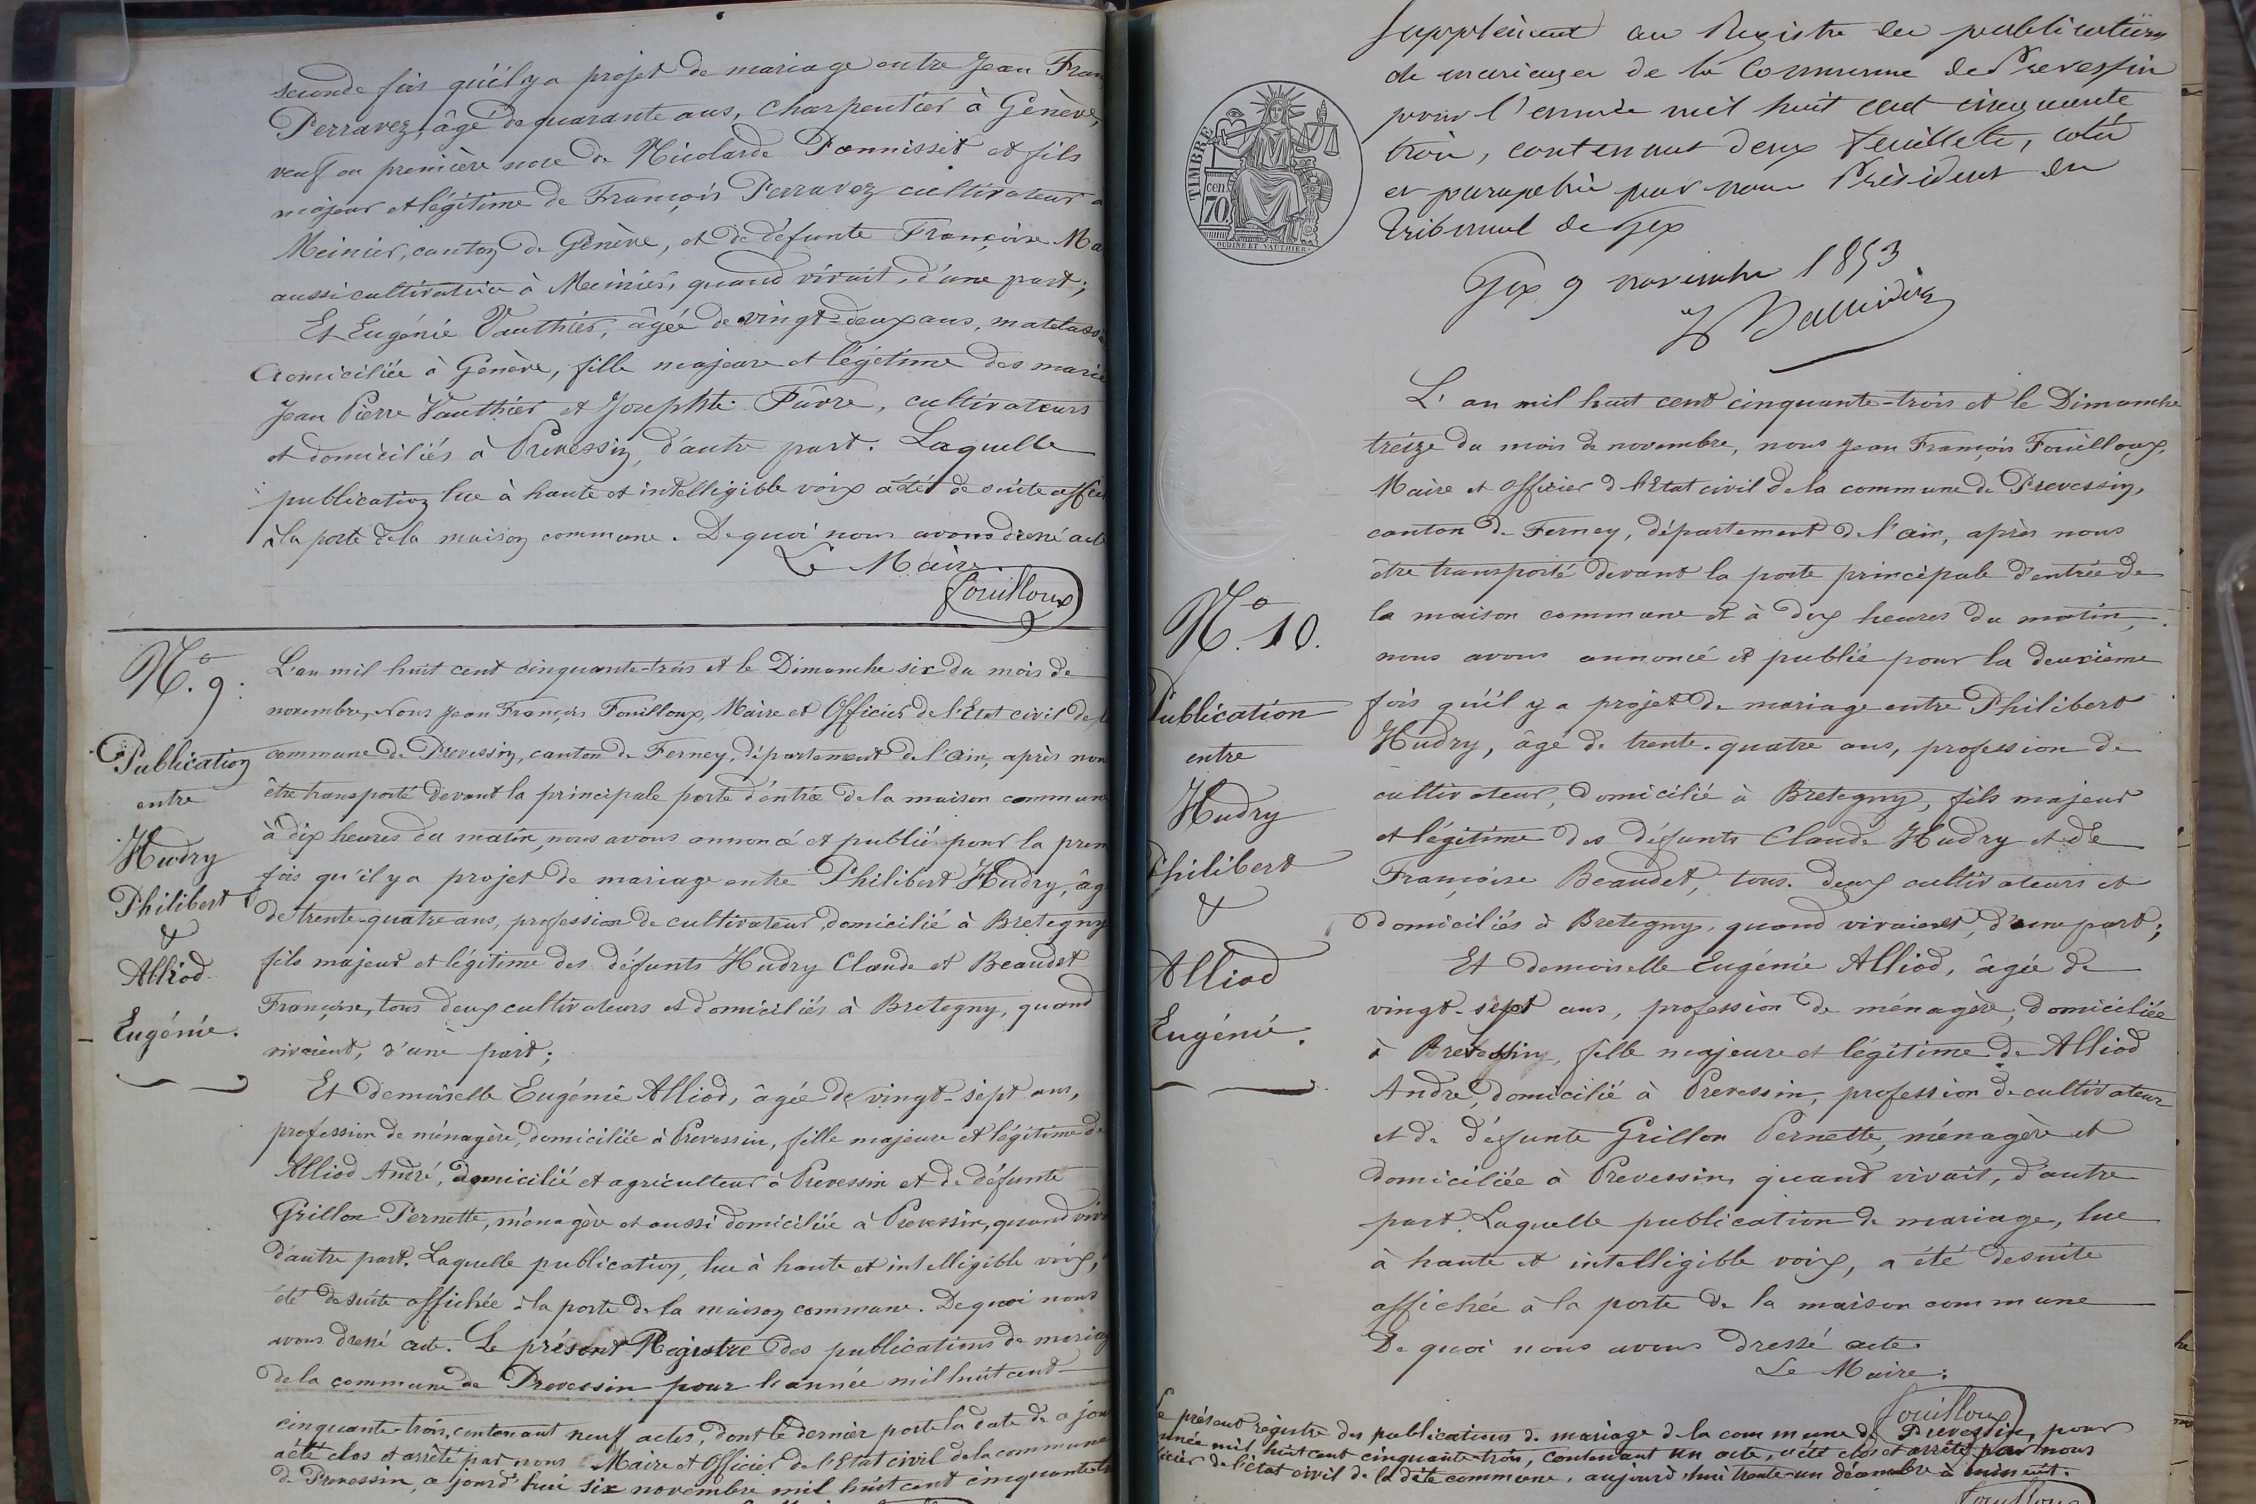 seconde fois qu'il y a projet de mariage entre Jean Fran
Perravez, âgé de quarante ans, charpentier à Genève,
veuf en première noce de Nicolarde Pannisset et fils
majeur et légitime de François Perravez cultivateur à
Meinier, canton de Genève, et de défunte Françoise Ma
aussi cultivatrice à Meinier, quand vivait, d'une part;
Et Eugénie Vauthier, âgée de vingt-deux ans, matelass
domiciliée à Genève, fille majeure et légitime des marié
Jean Pierre Vauthier et Josephte Favre, cultivateurs
et domiciliés à Prevessin, d'autre part. Laquelle
publication lue à haute et intelligible voix a été de suite affich
à la porte de la maison commune. De quoi nous avons dressé acte
Le Maire.
Fouilloux
No. 9.
Publication
entre
Hudry
Philibert
&
Alliod
Eugénie.
L'an mil huit cent cinquante-trois et le Dimanche six du mois de
novembre, Nous Jean François Fouilloux, Maire et Officier de l'Etat civil de l
commune de Prevessin, canton de Ferney, département de l'Ain, après nou
être transporté devant la principale porte d'entrée de la maison commune
à dix heures du matin, nous avons annoncé et publié pour la prem
fois qu'il y a projet de mariage entre Philibert Hudry, âg
de trente-quatre ans, profession de cultivateur, domicilié à Bretegny
fils majeur et légitime des défunts Hudry Claude et Beaudet
Françoise, tous deux cultivateurs et domiciliés à Bretegny, quand
vivaient, d'une part;
Et Demoiselle Eugénie Alliod, âgée de vingt-sept ans,
profession de ménagère, domiciliée à Prevessin, fille majeure et légitime de
Alliod André, domicilié et agriculteur à Prevessin et de défunte
Grillon Pernette, ménagère et aussi domiciliée à Prevessin, quand viv
d'autre part. Laquelle publication, lue à haute et intelligible voix,
été de suite affichée à la porte de la maison commune. De quoi nous
avons dressé acte. Le présent Registre des publications de mariag
de la commune de Prevessin pour l'année mil huit cent
cinquante-trois, contenant neuf actes, dont le dernier porte la date de ce jour
a été clos et arrêté par nous Maire et Officier de l'Etat civil de la commune
de Prevessin, ajourd'hui six novembre mil huit cent cinquante tr
Supplément au Registre des publications
de mariages de la Commune de Prevessin
pour l'année mil huit cent cinquante
trois, contenant deux feuillets, cotés
et paraphés par nous Président du
Tribunal de Gex
Gex 9 novembre 1853
TIMBRE
cen.
70
OUDINE ET VAUTHIER
No. 10.
Publication
entre
Hudry
Philibert
&
Alliod
Eugénie.
L'an mil huit cent cinquante-trois et le Dimanche
treize du mois de novembre, nous Jean François Fouilloux,
Maire et Officier de l'Etat civil de la commune de Prevessin,
canton de Ferney, département de l'Ain, après nous
être transporté devant la porte principale d'entrée de
la maison commune et à dix heures du matin,
nous avons annoncé et publié pour la deuxième
fois qu'il y a projet de mariage entre Philibert
Hudry, âgé de trente-quatre ans, profession de
cultivateur, domicilié à Bretegny, fils majeur
et légitime des défunts Claude Hudry et de
Françoise Beaudet, tous deux cultivateurs et
domiciliés à Bretegny, quand vivaient, d'une part;
Et demoiselle Eugénie Alliod, âgée de
vingt-sept ans, profession de ménagère, domiciliée
à fille majeure et légitime de Alliod
André, domicilié à Prevessin, profession de cultivateur
et de défunte Grillon Pernette, ménagère et
domiciliée à Prevessin, quand vivait, d'autre
part. Laquelle publication de mariage, lue
à haute et intelligible voix, a été de suite
affichée à la porte de la maison commune
De quoi nous avons dressé acte.
Le Maire:
Fouilloux
Le présent registre des publications de mariage de la commune de Prevessin, pour
nnée mil huit cent cinquante-trois, contenant un acte, a été clos et arrêté par nous
icier de l'état civil de la dite commune, aujourd'hui trente-un décembre à minuit.
Fouilloux